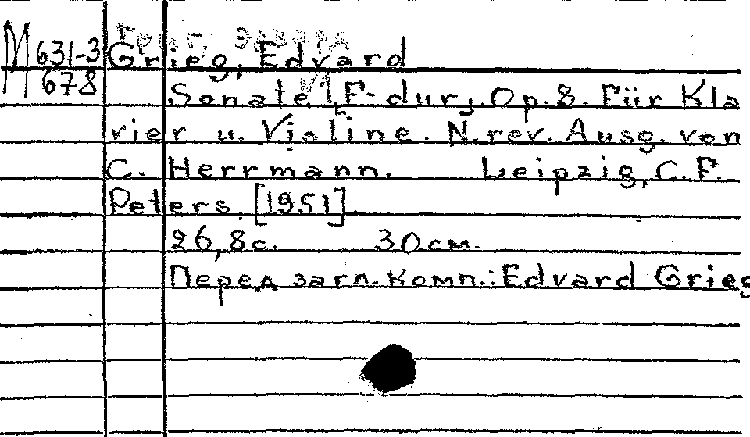 М 631-3
678
Григ, Эдвард
Grieg, Edvard
Sonate, F-dur, Op. 8. Für Kla
vier u. Violine. N. rev. Ausg. von
C. Herrmann. Leipzig, C. F.
Peters. [1951]
26,8с. 30см.
Перед загл. комп.: Edvard Grieg